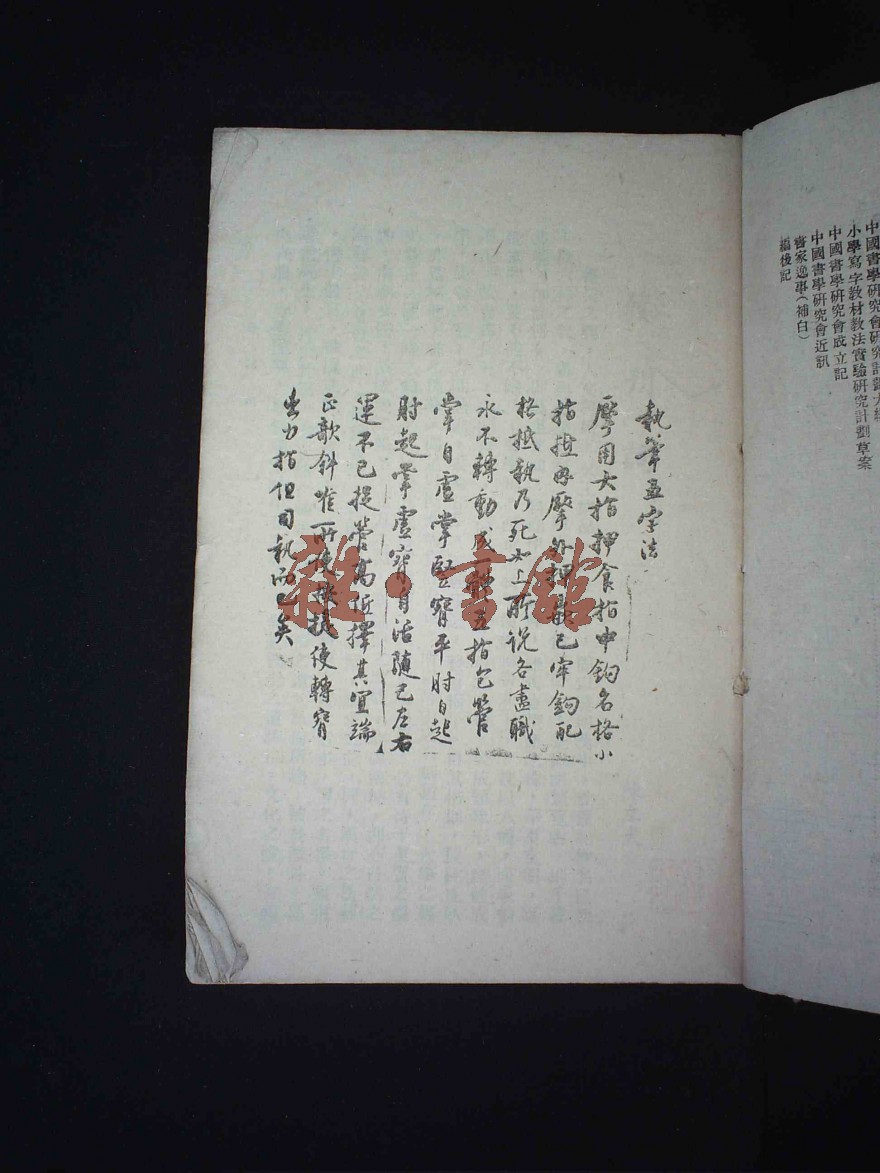 中國書學研究會研究計劃大綱
小學寫字教材教法實驗研究計劃草案
中國書學研究會成立記
中國書學研究會近訊
書家逸事(補白)
編後記
執筆五字法
擫用大指押食指中鉤名格小
指抵內擫外押執已牢鉤配
格抵執乃死如上所說各盡職
永不轉動成一體五指包管
掌自虛掌竪腕平肘自起
肘起掌虛腕自活隨己左右
運不已提管高低擇其宜端
正欹斜唯所使使轉腕
出力指但司執而已矣
雜·書館